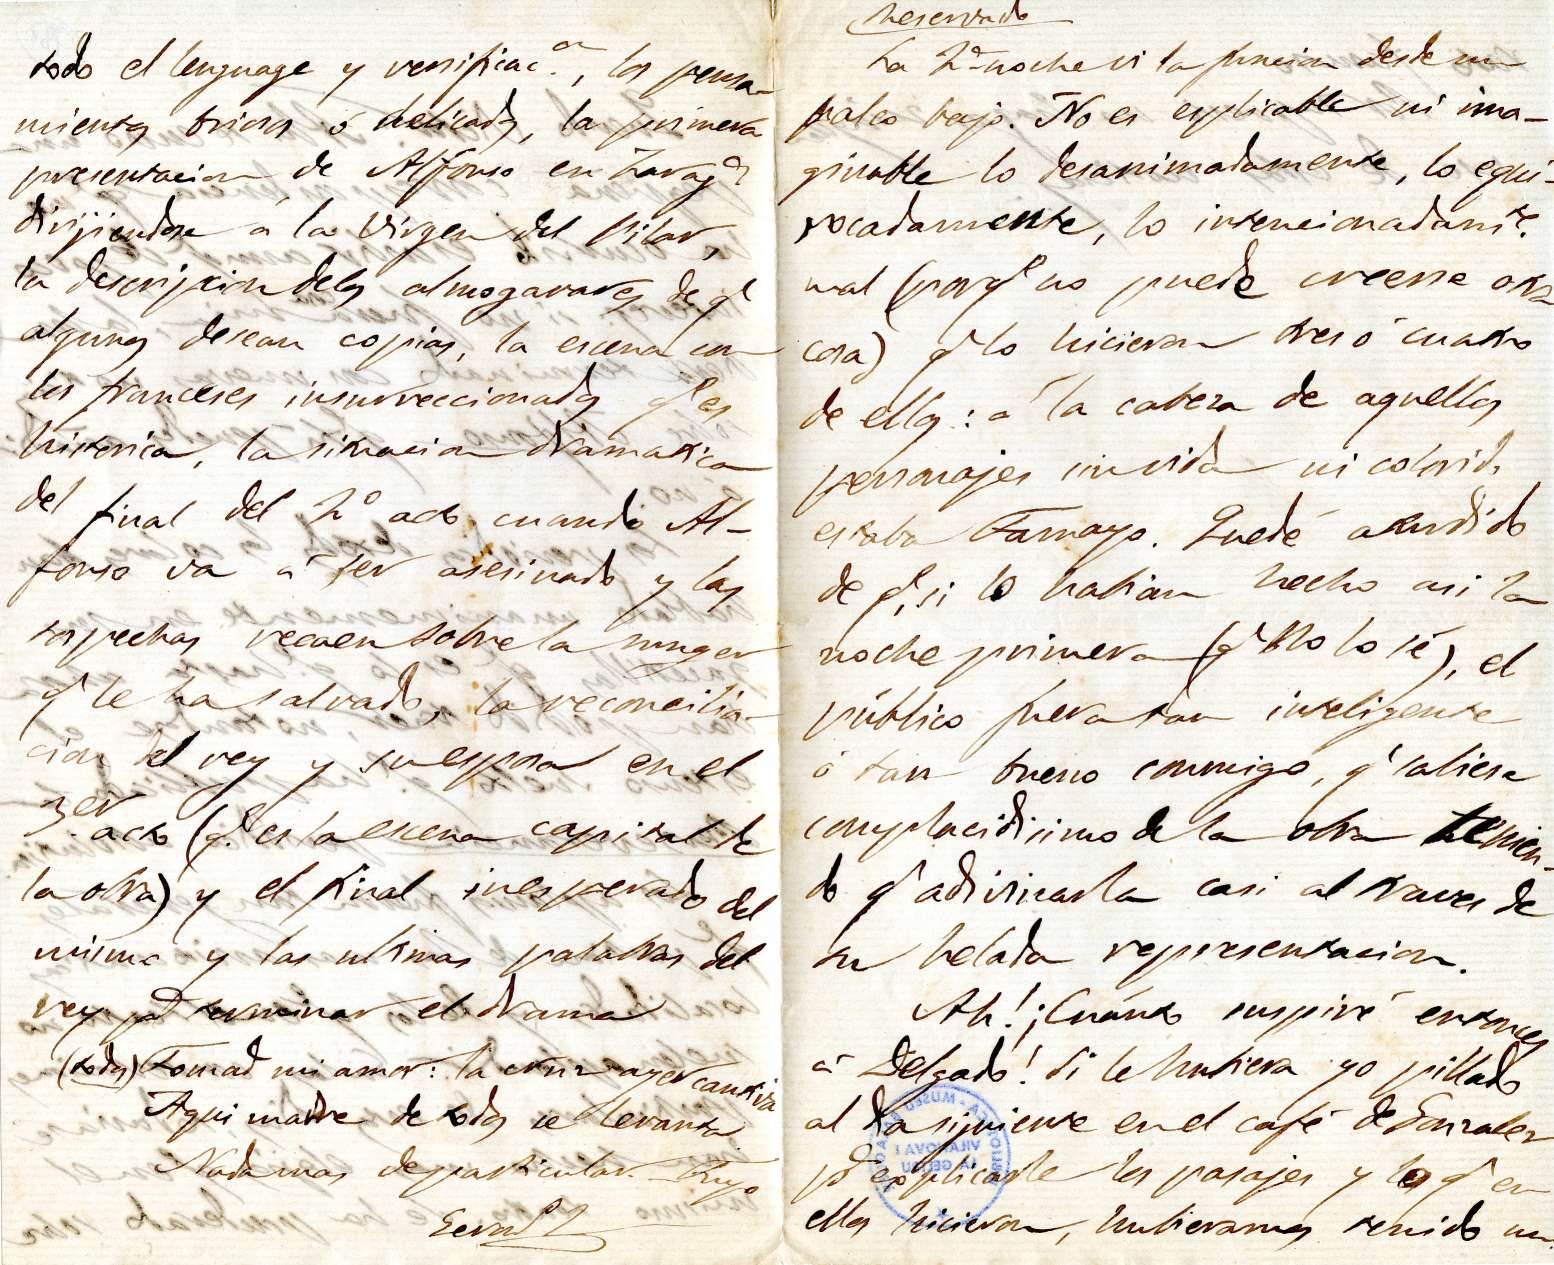 todo el lenguage y versificac.on, los pensa-
mientos briosos ó delicados, la primera
presentacion de Alfonso en Zarag.a
dirijiendose á la Virgen del Pilar,
la descripcion de los almogavares de q.e
algunos desean copias, la escena con
los franceses insurreccionados q.e es
historica, la situacion dramatica
del final del 2º acto cuando Al-
fonso va á ser asesinado y las
sospechas recaen sobre la muger
q.e le ha salvado, la reconcilia-
cion del rey y su esposa en el
3.er acto (q.e es la escena capital de
la obra) y el final inesperado del
mismo y las ultimas palabras del
rey p.a terminar el drama
(todos) Tomad mi amor: la cruz ayer cautiva
Aqui madre de todos se levanta
Nada mas de particular. Tuyo
Reservado
La 2.a noche vi la funcion desde un
palco bajo. No es esplicable ni ima-
ginable lo desanimadamente, lo equi-
vocadamente, lo intencionadam.te
mal (porq.e no puede creerse otra
cosa) q.e lo hicieron tres ó cuatro
de ellos: á la cabeza de aquellos
personajes sin vida ni colorido
estaba Tamayo. Quedé aturdido
de q.e, si lo habian hecho asi la
noche primera (q.e no lo sé), el
público fuera tan inteligente
ó tan bueno conmigo, q.e saliera
complacidisimo de la obra tenien-
do q.e adivinarla casi al traves de
su helada representacion.
Ah! ¡Cuánto suspiré entonces
á Delgado! Si le hubiera yo pillado
al dia siguiente en el café de Gonzalez
p.a esplicarle los pasajes y lo q.e en
ellos hicieron, hubieramos tenido un
BIBLIOTECA - MUSEO BALAGUER
VILANOVA I
LA GELTRU